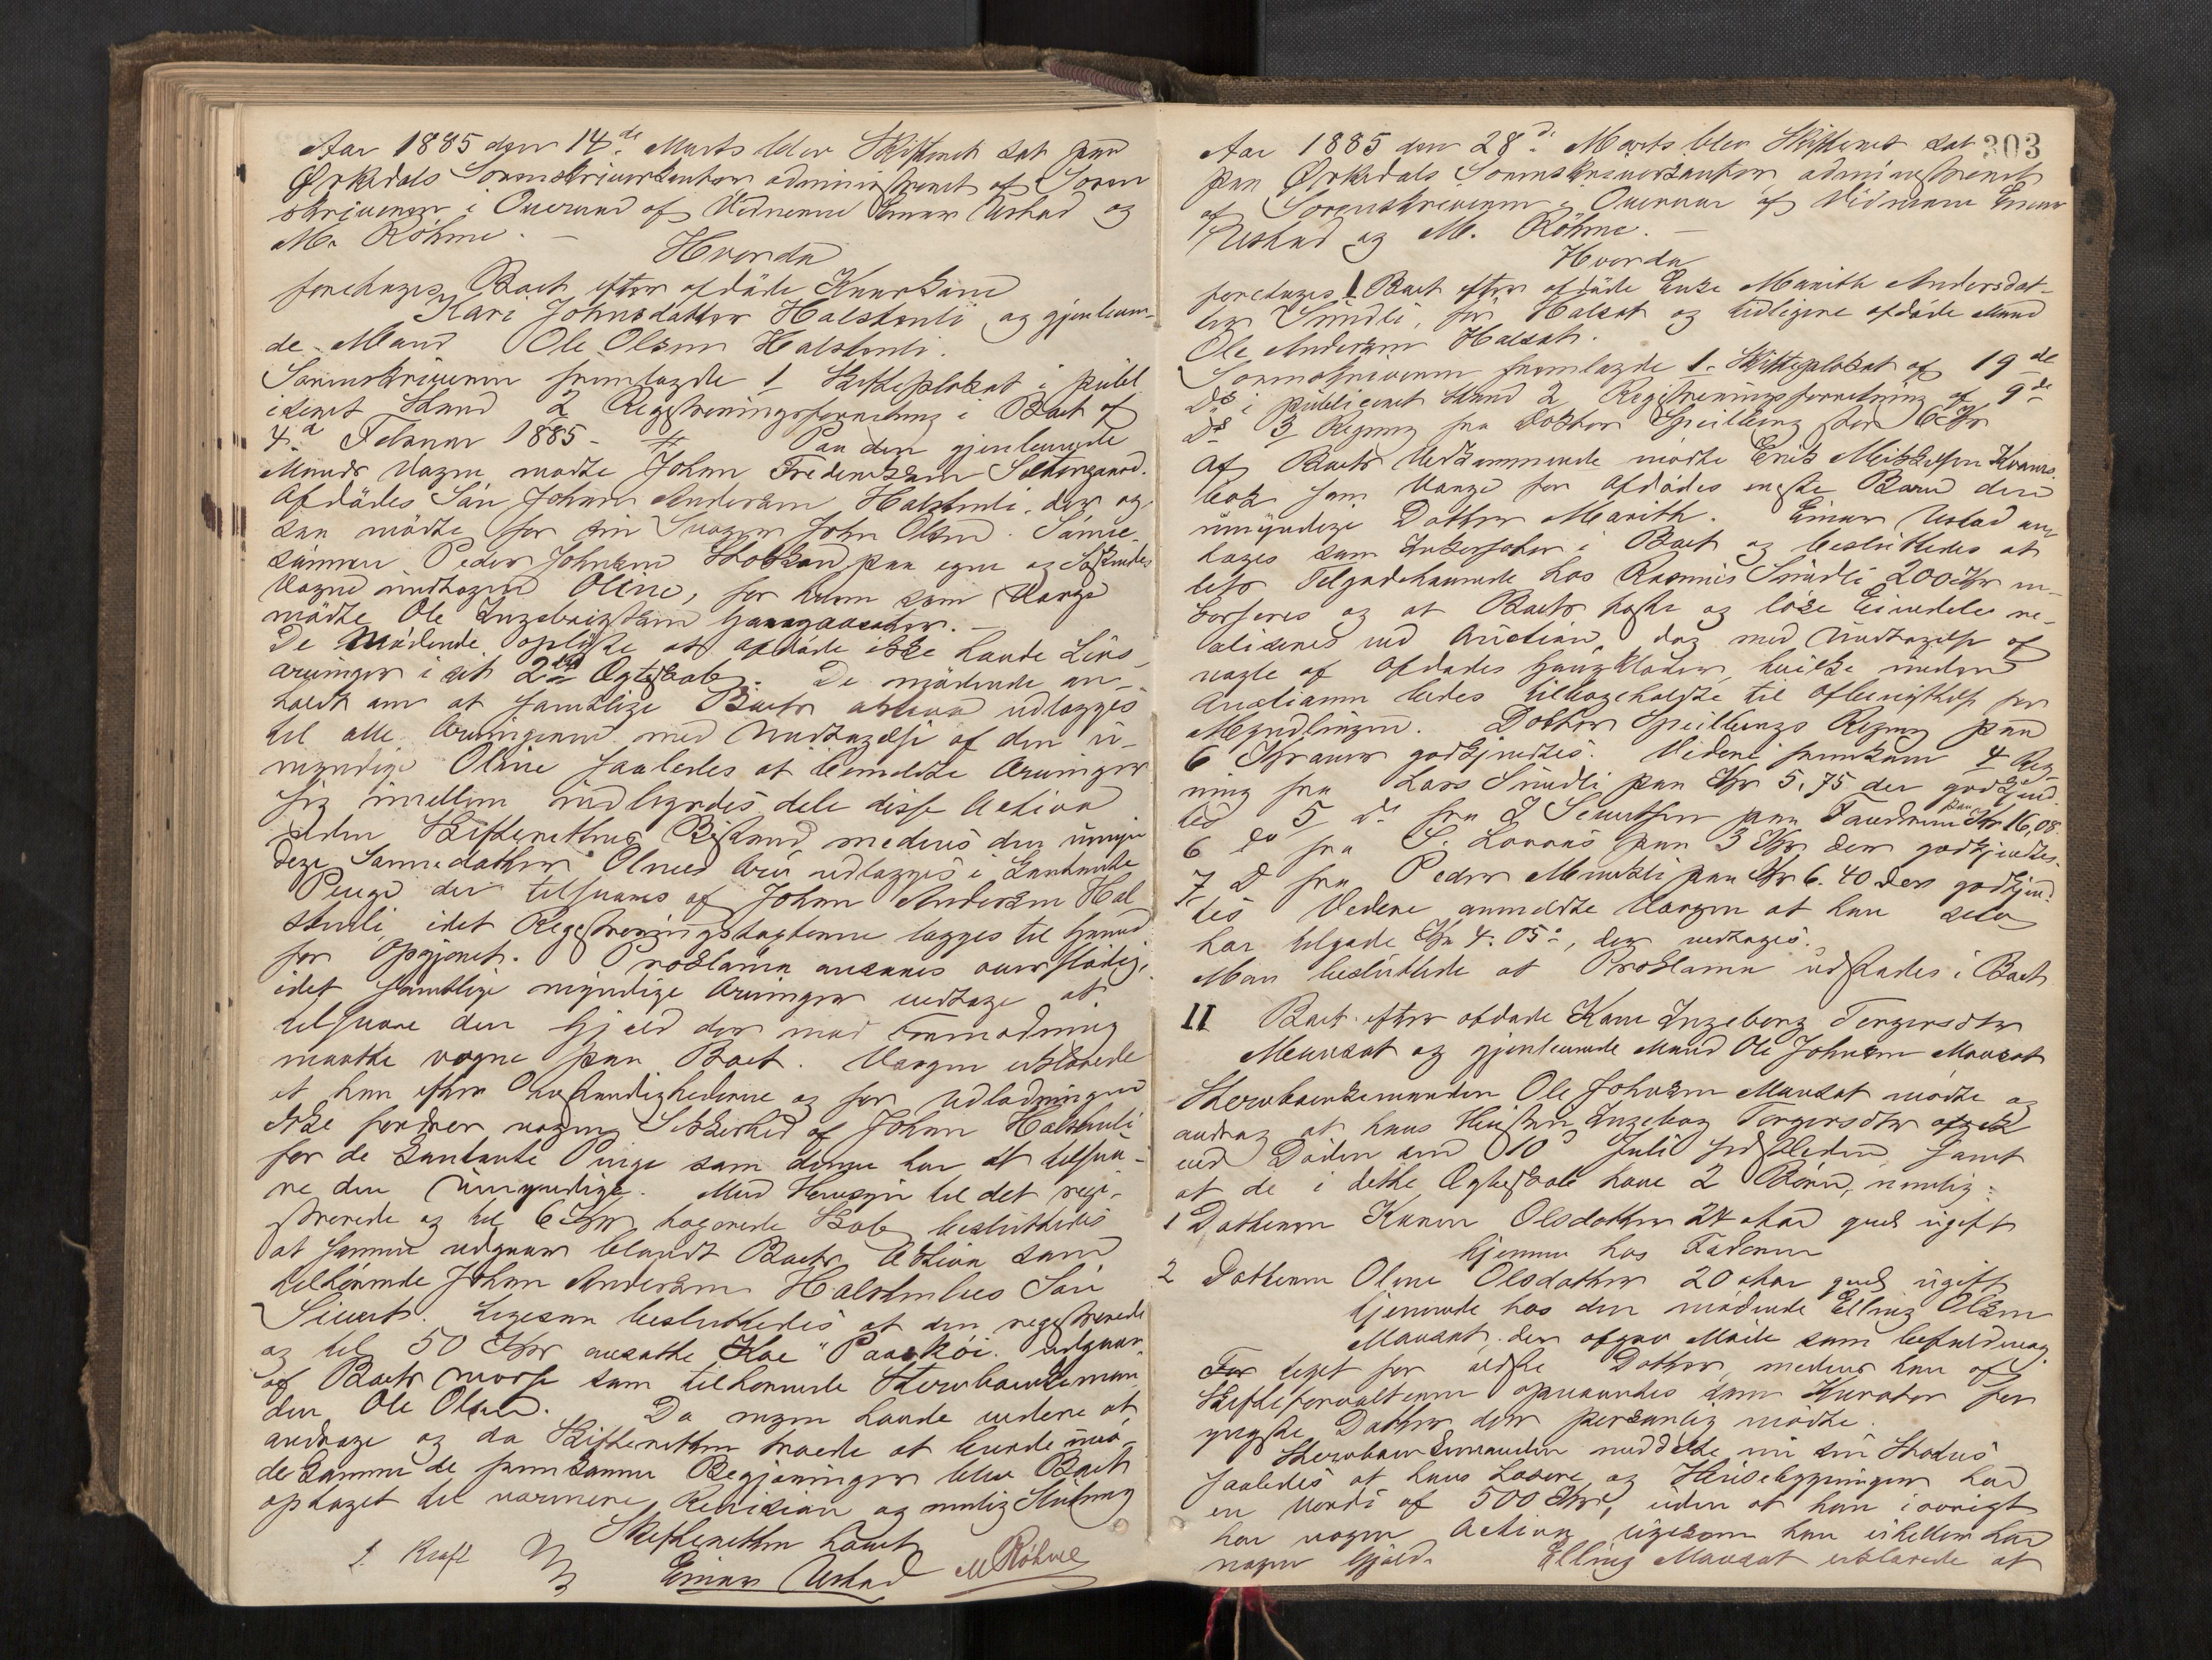 Aar 1885 den 14de Marts blev Skifteret sat paa
Ørkedals Sorenskriverkontor administreret af Soren
skriveren i Overvær af Vidnerne Einar Ustad og
M. Röhme. —
Hvorda
foretoges Boet efter afdöde Kaarkone
Kari Johnsdatter Halstenli og gjenleven-
de Mand Ole Olsen Halstenli.
Sorenskriveren fremlagde 1 Skifteplakat i publ
iceret Stand 2 Registreringsforretning i Boet af
4de Februar 1885 — Paa den gjenlevende
Mands Vegne mødte Johan Fredriksen
Afdödes Sön Johan Andersen Halstenli, der og
saa mödte for sin Svoger John Olsen. Sönne
sönnen Peder Johnsen paa egne og Söskendes
Vegne undtagen Oline, for hvem som Værge
mödte Ole Ingebrigtsen
De Mödende oplyste at afdöde ikke havde Livs-
arvinger i sit 2det Ægteskab. De mödende an-
holdt om at samtlige Boets aktiva udlægges
til alle Arvingerne med Undtagelse af den u-
myndige Oline saaledes at bemeldte Arvinger
sig imellem indbyrdes dele disse Activa
uden Skifterettens Bistand medens den umyn
dige Sønnedatter Olines Arv udlægges i Kontante
Penge der tilsvares af Johan Andersen Hal
stenli idet Registreringstaxterne lægges til Grund
for Opgjöret. Proklama ansaaes overflödig,
idet samtlige myndige Arvinger vedtage at
tilsvare den Gjæld der mod Formodning
maatte være paa Boet. Værgen erklærede
at han efter Omstændighederne og for Udlodningen
ikke fordrer nogen Sikkerhed af Johan Halstenli
for de kontante Penge som denne har at tilsva-
re den Umyndige. Med Hensyn til det regi-
strerede og til 6 Kr taxerede Skab besluttedes
at samme udgaar blandt Boets Aktiva som
tilhörende Johan Andersen Halstenlis Sön
Sivert. Ligesaa besluttedes at den registrerede
og til 50 Kr ansatte Ko "Paasköi" udgaar
af Boets Masse som tilhörende Stervboenkeman
den Ole Olsen. Da ingen havde videre at
andrage og da Skifteretten troede at burde imö-
dekomme de fremkomne Begjæringer blev Boet
optaget til nærmere Revision og mulig Slutning
Skifteretten hævet
J. Kraft Einar Ustad M Röhme
303
Aar 1885 den 28de Marts blev Skifteret sat
paa Ørkedals Sorenskriverkontor administreret
af Sorenskriveren i Overvær af Vidnerne Einar
Ustad og M. Röhme. —
Hvorda
foretoges I Boet efter afdöde Enke Marith Andersdat-
ter Smidli, för Halsæt og tidligere afdöde Mand
Ole Andersen Halsæt.
Sorenskriveren fremlagde 1. Skifteplakat af 19de
Ds i publiceret Stand 2 Registreringsforretning af 9de
Ds 3 Regning fra Doktor Speilberg stor 6 Kr
Af Boets Vedkommende mödte Erik Mikkelsen
som Værge for afdödes eneste Barn den
umyndige Datter Marith. Einar Ustad an
toges som Inkassator i Boet og besluttedes at
dets Tilgodehavende hos Rasmus Smidli 200 Kr in-
kasseres og at Boets faste og löse Eiendele re-
aliseres ved Auction, dog med Undtagelse af
nogle af Afdödes Gangklæder, hvilke uden
Auctionen bedes tilbageholdte til Afbenyttelse for
Myndlingen. Doktor Speilbergs Regning paa
6 Kroner godkjendtes. Videre fremkom 4 Reg
ning fra Lars Smidli paa Kr 5,75 der godkjend
tes 5 do fra J Sivertsen paa Kr 16,08.
6 do fra paa 3 Kr der godkjendtes.
7 D fra Peder paa Kr 6.40 der godkjend-
tes Videre anmeldte Værgen at han selv
har tilgode Kr 4.05, der vedtoges.
Man besluttede at Proklama udstedes i Boet
II Boet efter afdöde Kone Ingeborg Torgersdtr
Mausæt og gjenlevende Mand Ole Johnsen Mausæt
Stervboenkemanden Ole Johnsen Mausæt mödte og
androg at hans Hustru Ingeborg Torgersdtr afgik
ved Döden den 10de Juli sidstleden, samt
at de i dette Ægteskab have 2 Börn, nemlig:
1 Datteren Karen Olsdatter 24 Aar gml ugift
hjemme hos Faderen
2 Datteren Oline Olsdatter 20 Aar gml ugift
tjenende hos den mödende Elling Olsen
Mausæt, der afgav Möde som befuldmæg
tiget for ældste Datter, medens han af
Skifteforvalteren opnævntes som Kurator for
yngste Datter der personlig mödte.
Stervboenkemanden meddelte nu sin Status
saaledes at hans Lösöre og Husebygninger har
en Værdi af 500 Kr, uden at han iövrigt
har nogen Activa ligesom han eiheller har
nogen Gjæld. Elling Mausæt erklærede at